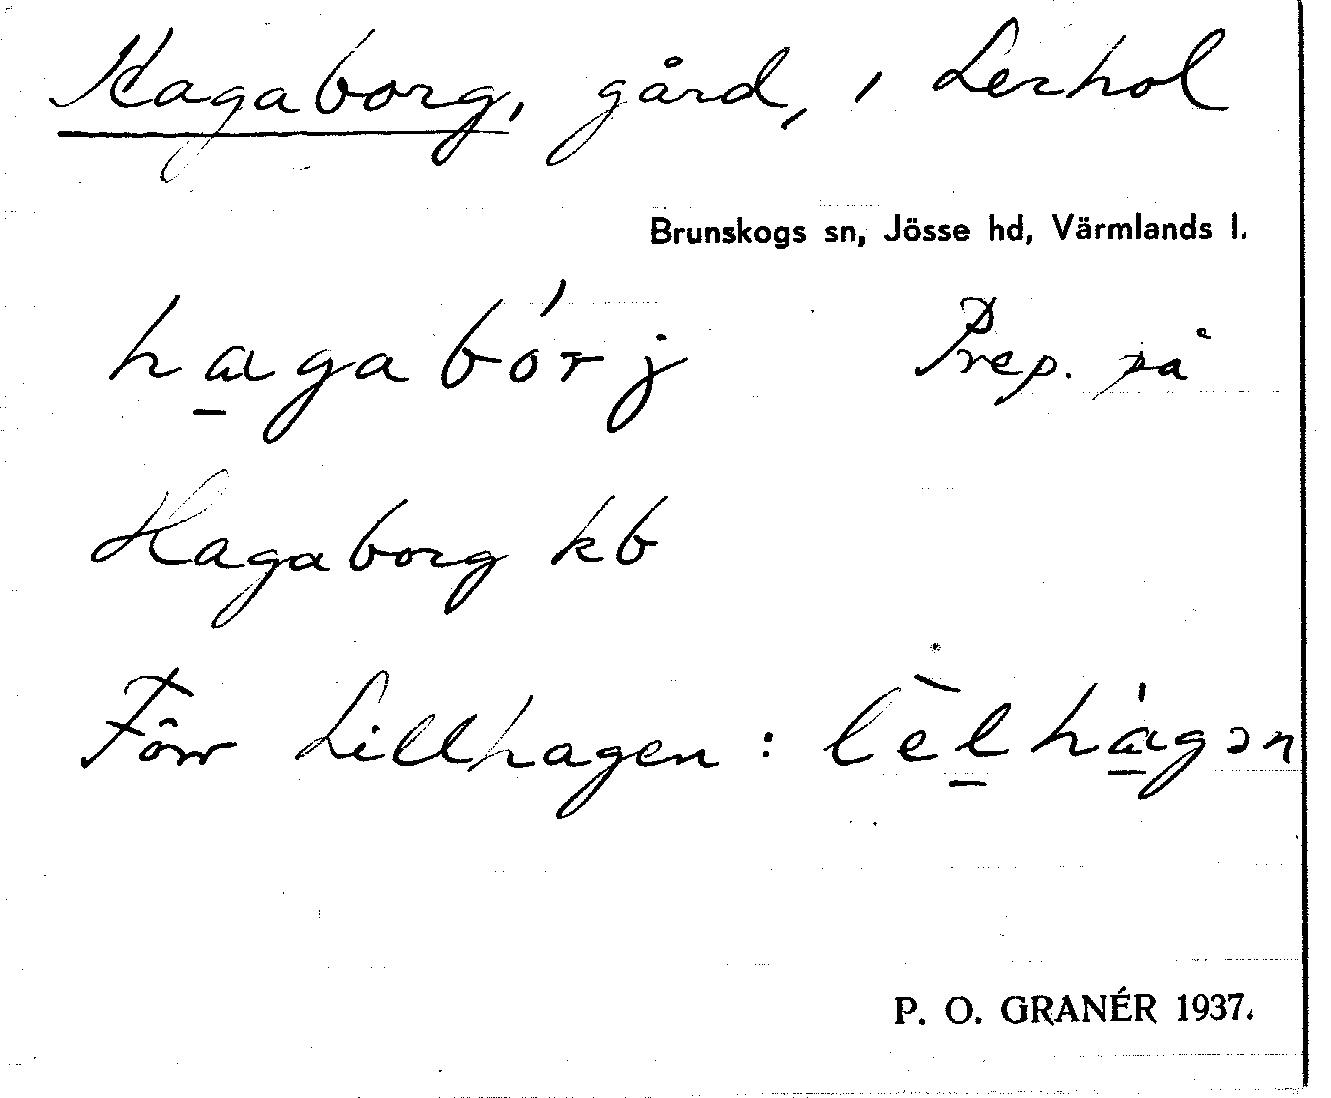 Hagaborg, gård, i Lerhol
Brunskogs sn, Jösse hd, Värmlands l.
ha̲gabórj Prep. på
Hagaborg kb
Förr Lillhagen : lèl̲há̲gən
P. O. GRANÉR 1937.